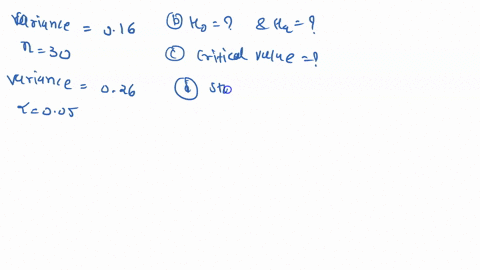 variance = 0.16
n = 30
variance = 0.26
α = 0.05
ⓑ H₀ = ? & Ha = ?
ⓒ critical value = ?
ⓓ sta